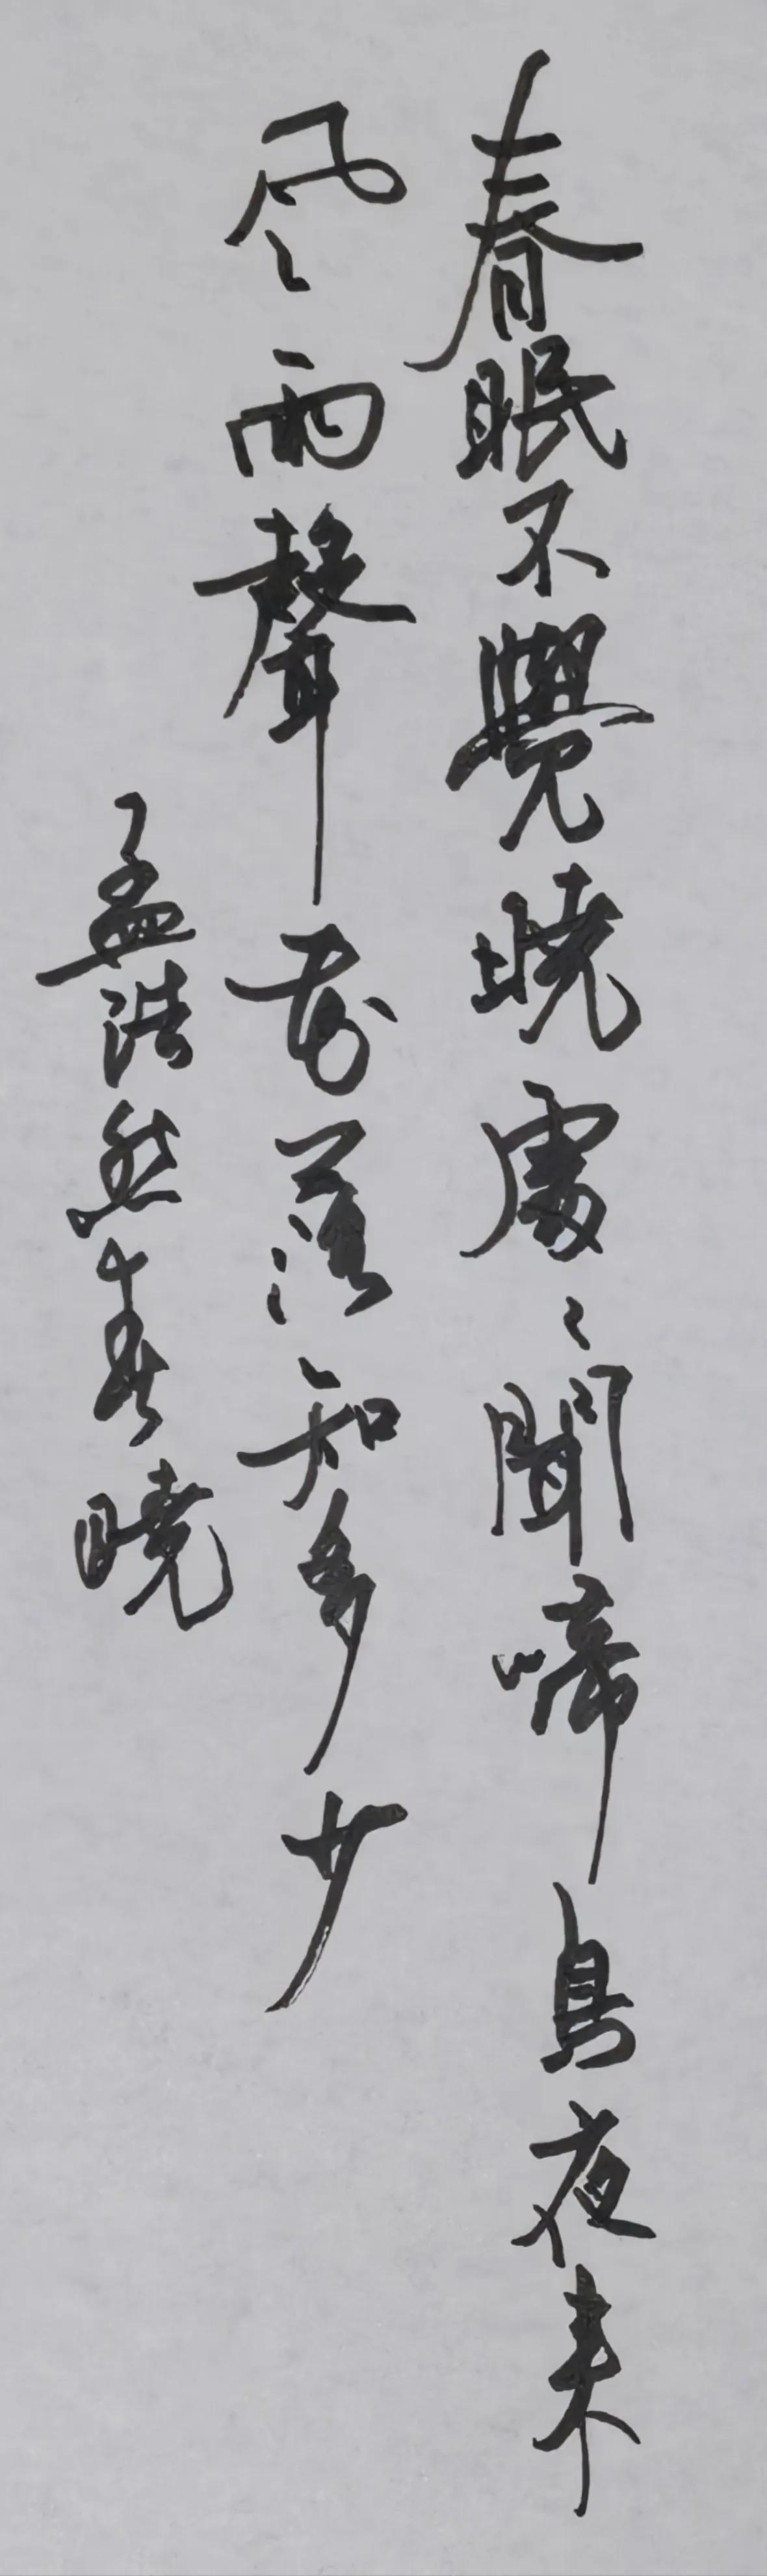 春眠不覺曉處々聞啼鳥夜来
風雨聲花落知多少
孟浩然春曉